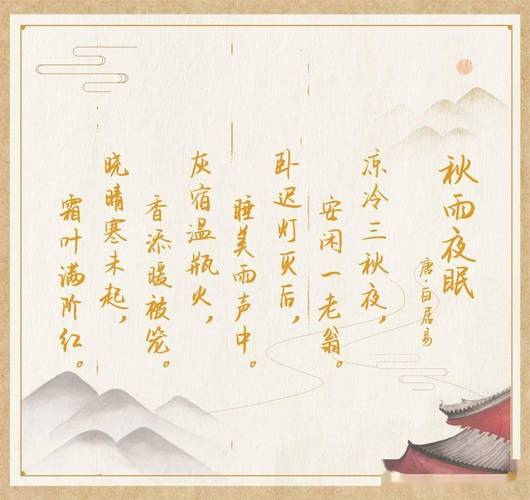 秋雨夜眠
唐·白居易
凉冷三秋夜，
安闲一老翁。
卧迟灯灭后，
睡美雨声中。
灰宿温瓶火，
香添暖被笼。
晓晴寒未起，
霜叶满阶红。